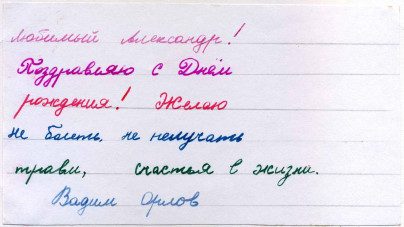 Любимый Александр!
Поздравляю с Днём
рождения! Желаю
не болеть, не получать
травм, счастья в жизни.
Вадим Орлов